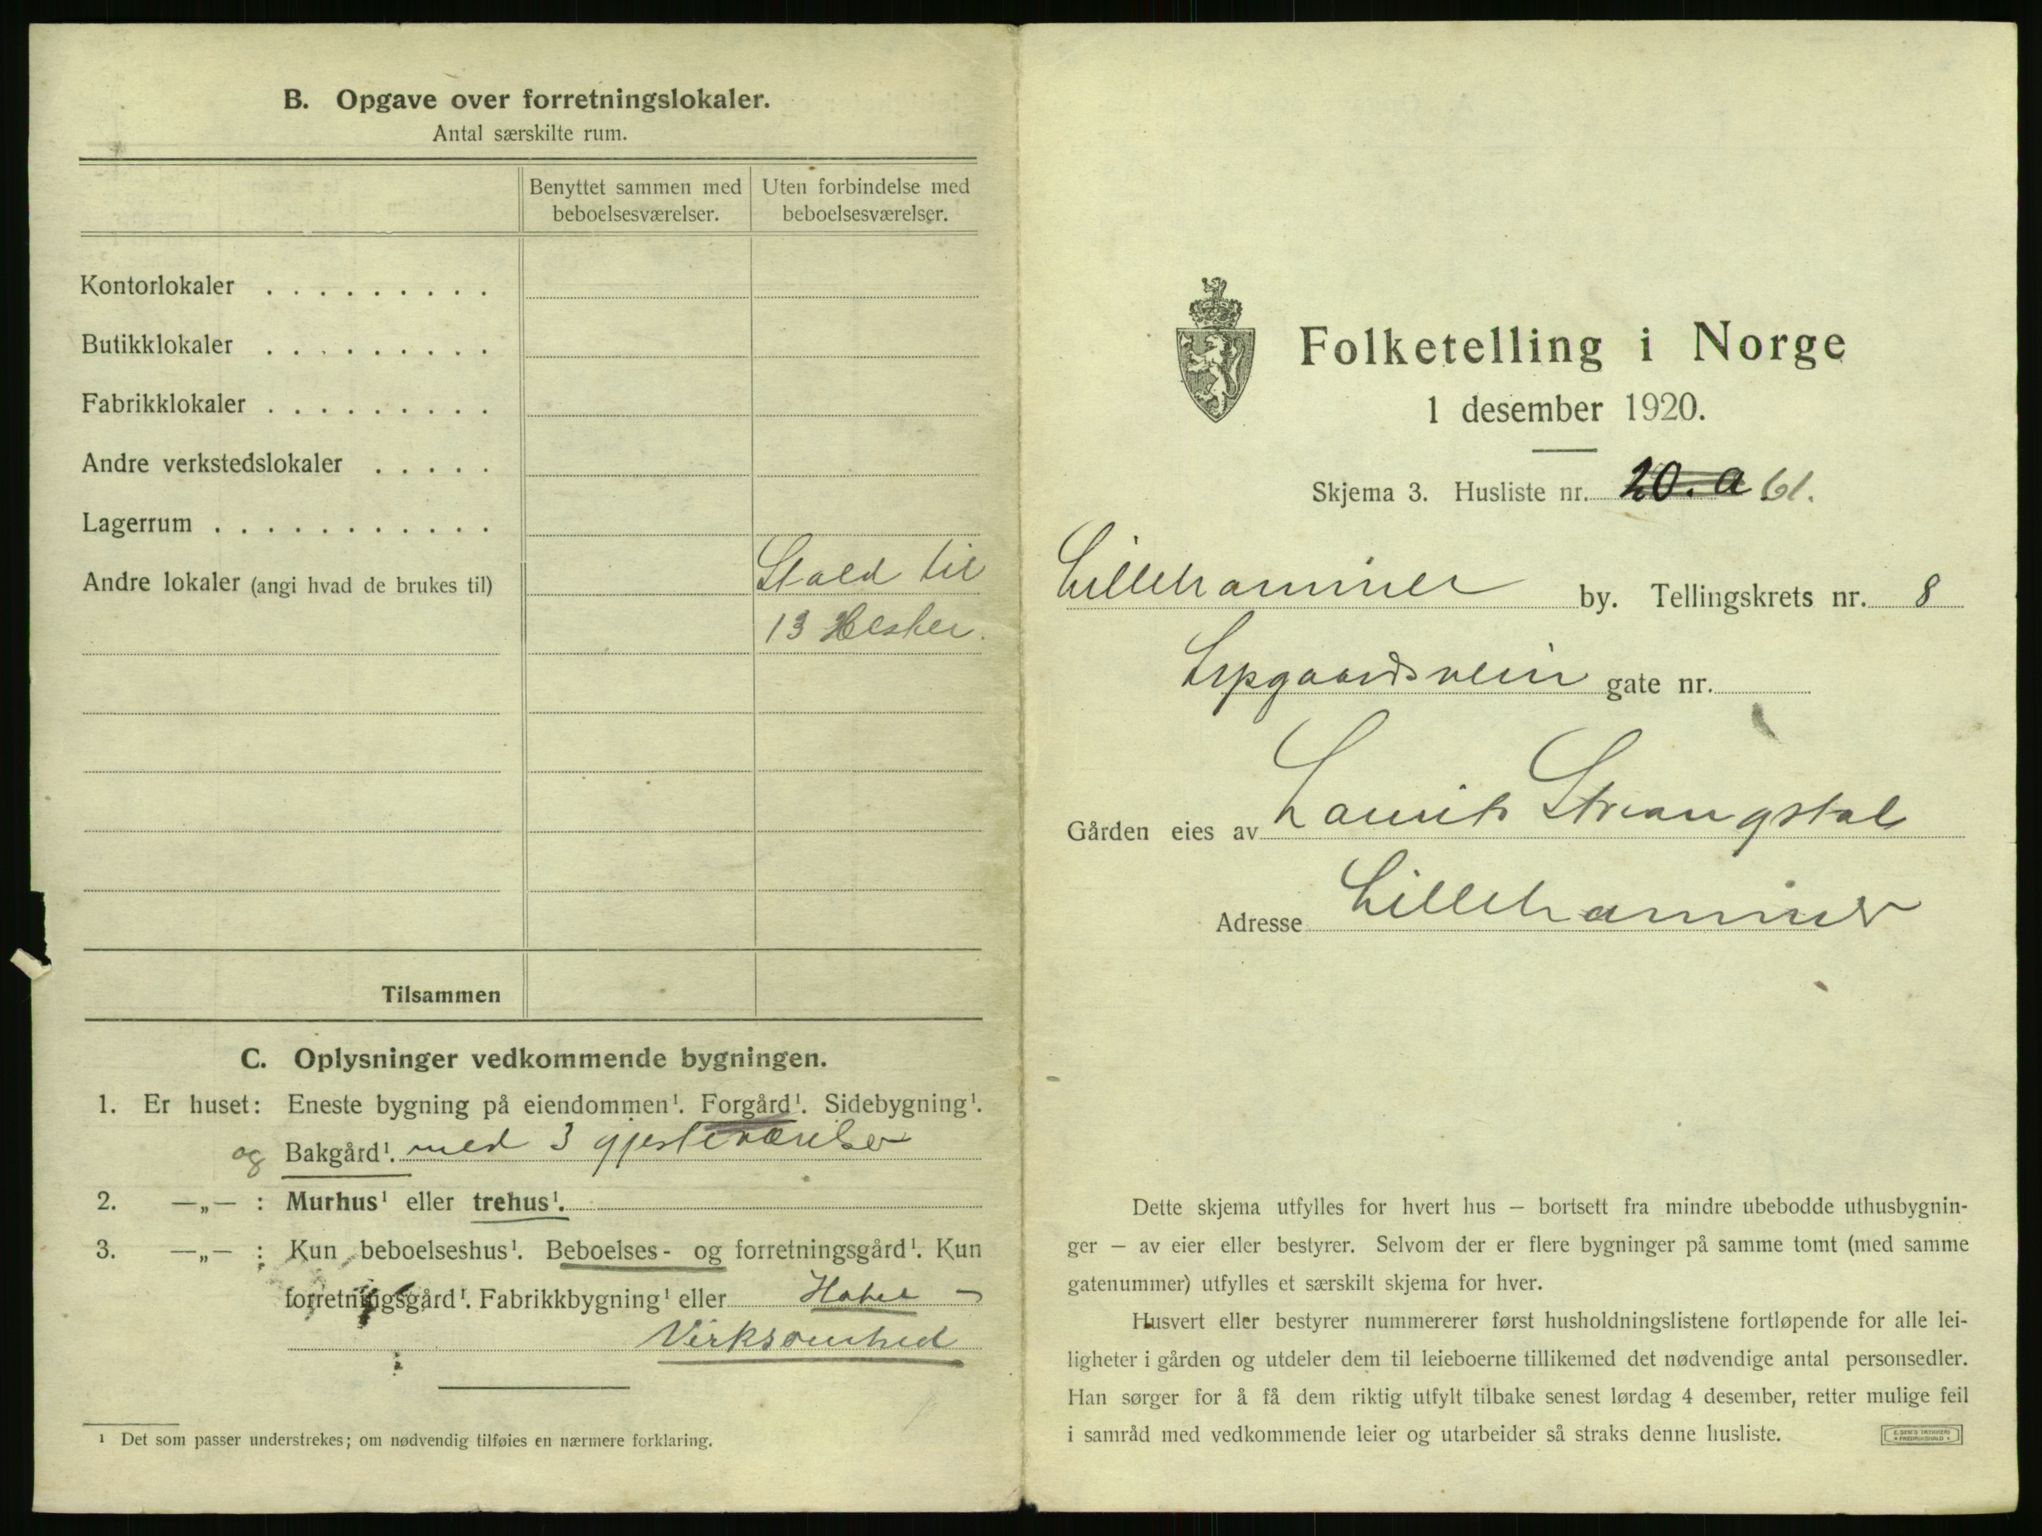 B. Opgave over forretningslokaler.
Antal særskilte rum.
Benyttet sammen med beboelsesværelser.
Uten forbindelse med beboelsesværelser.
Kontorlokaler . . . . . . . . .
Butikklokaler . . . . . . . . .
Fabrikklokaler . . . . . . . . .
Andre verkstedslokaler . . . . .
Lagerrum . . . . . . . . . . .
Andre lokaler (angi hvad de brukes til) Stald til
13 Hester.
Tilsammen
C. Oplysninger vedkommende bygningen.
1. Er huset: Eneste bygning på eiendommen¹. Forgård¹. Sidebygning¹.
og Bakgård¹. med 3 gjesteværelser
2. —„— : Murhus¹ eller trehus¹.
3. —„— : Kun beboelseshus¹. Beboelses- og forretningsgård¹. Kun
forretningsgård¹. Fabrikkbygning¹ eller Hotel -
Virksomhed
¹ Det som passer understrekes; om nødvendig tilføies en nærmere forklaring.
Folketelling i Norge
1 desember 1920.
Skjema 3. Husliste nr. 20. a 61.
Lillehammer by. Tellingskrets nr. 8
Lypgaardsvein gate nr.
Gården eies av Laurits Strangstal
Adresse Lillehammer
Dette skjema utfylles for hvert hus — bortsett fra mindre ubebodde uthusbygnin-
ger — av eier eller bestyrer. Selvom der er flere bygninger på samme tomt (med samme
gatenummer) utfylles et særskilt skjema for hver.
Husvert eller bestyrer nummererer først husholdningslistene fortløpende for alle lei-
ligheter i gården og utdeler dem til leieboerne tillikemed det nødvendige antal personsedler.
Han sørger for å få dem riktig utfylt tilbake senest lørdag 4 desember, retter mulige feil
i samråd med vedkommende leier og utarbeider så straks denne husliste.